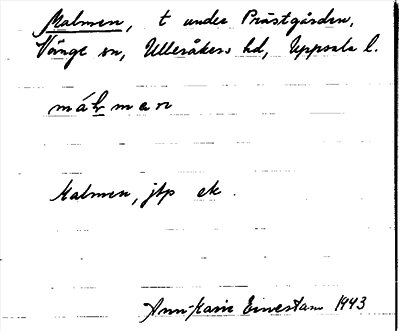 Malmen, t under Prästgården,
Vänge sn, Ulleråkers hd, Uppsala l.
málmen
Malmen, jtp ek.
Ann-Karin Einestam 1943